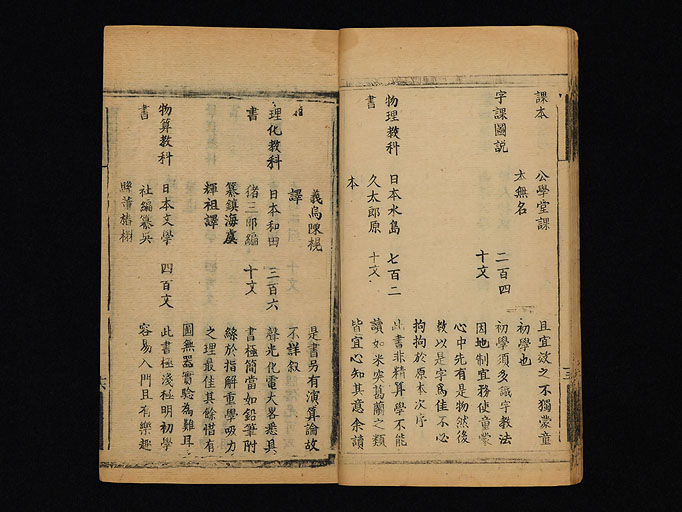 課本　公學堂課　且宜效之不獨蒙童
太無名　初學也
字課圖說　二百四十文　初學須多識字教法
因地制宜務使童蒙
心中先有是物然後
教以是字爲佳不必
拘拘於原本次序
物理教科書　日本水島久太郎原本　七百二十文　此書非精算學不能
讀如米突葛蘭之類
皆宜心知其意余讀
義烏陳榥譯　是書另有演算論故
不詳叙
理化教科書　日本和田猪三郎編纂鎮海虞輝祖譯　三百六十文　聲光化電大畧悉具
書極簡當如鉛筆附
綠於指解重學吸力
之理最佳其餘惜有
圖無器實驗為難耳
物算教科書　日本文學社編纂吳　四百文　此書極淺極明初學
容易入門且有樂趣